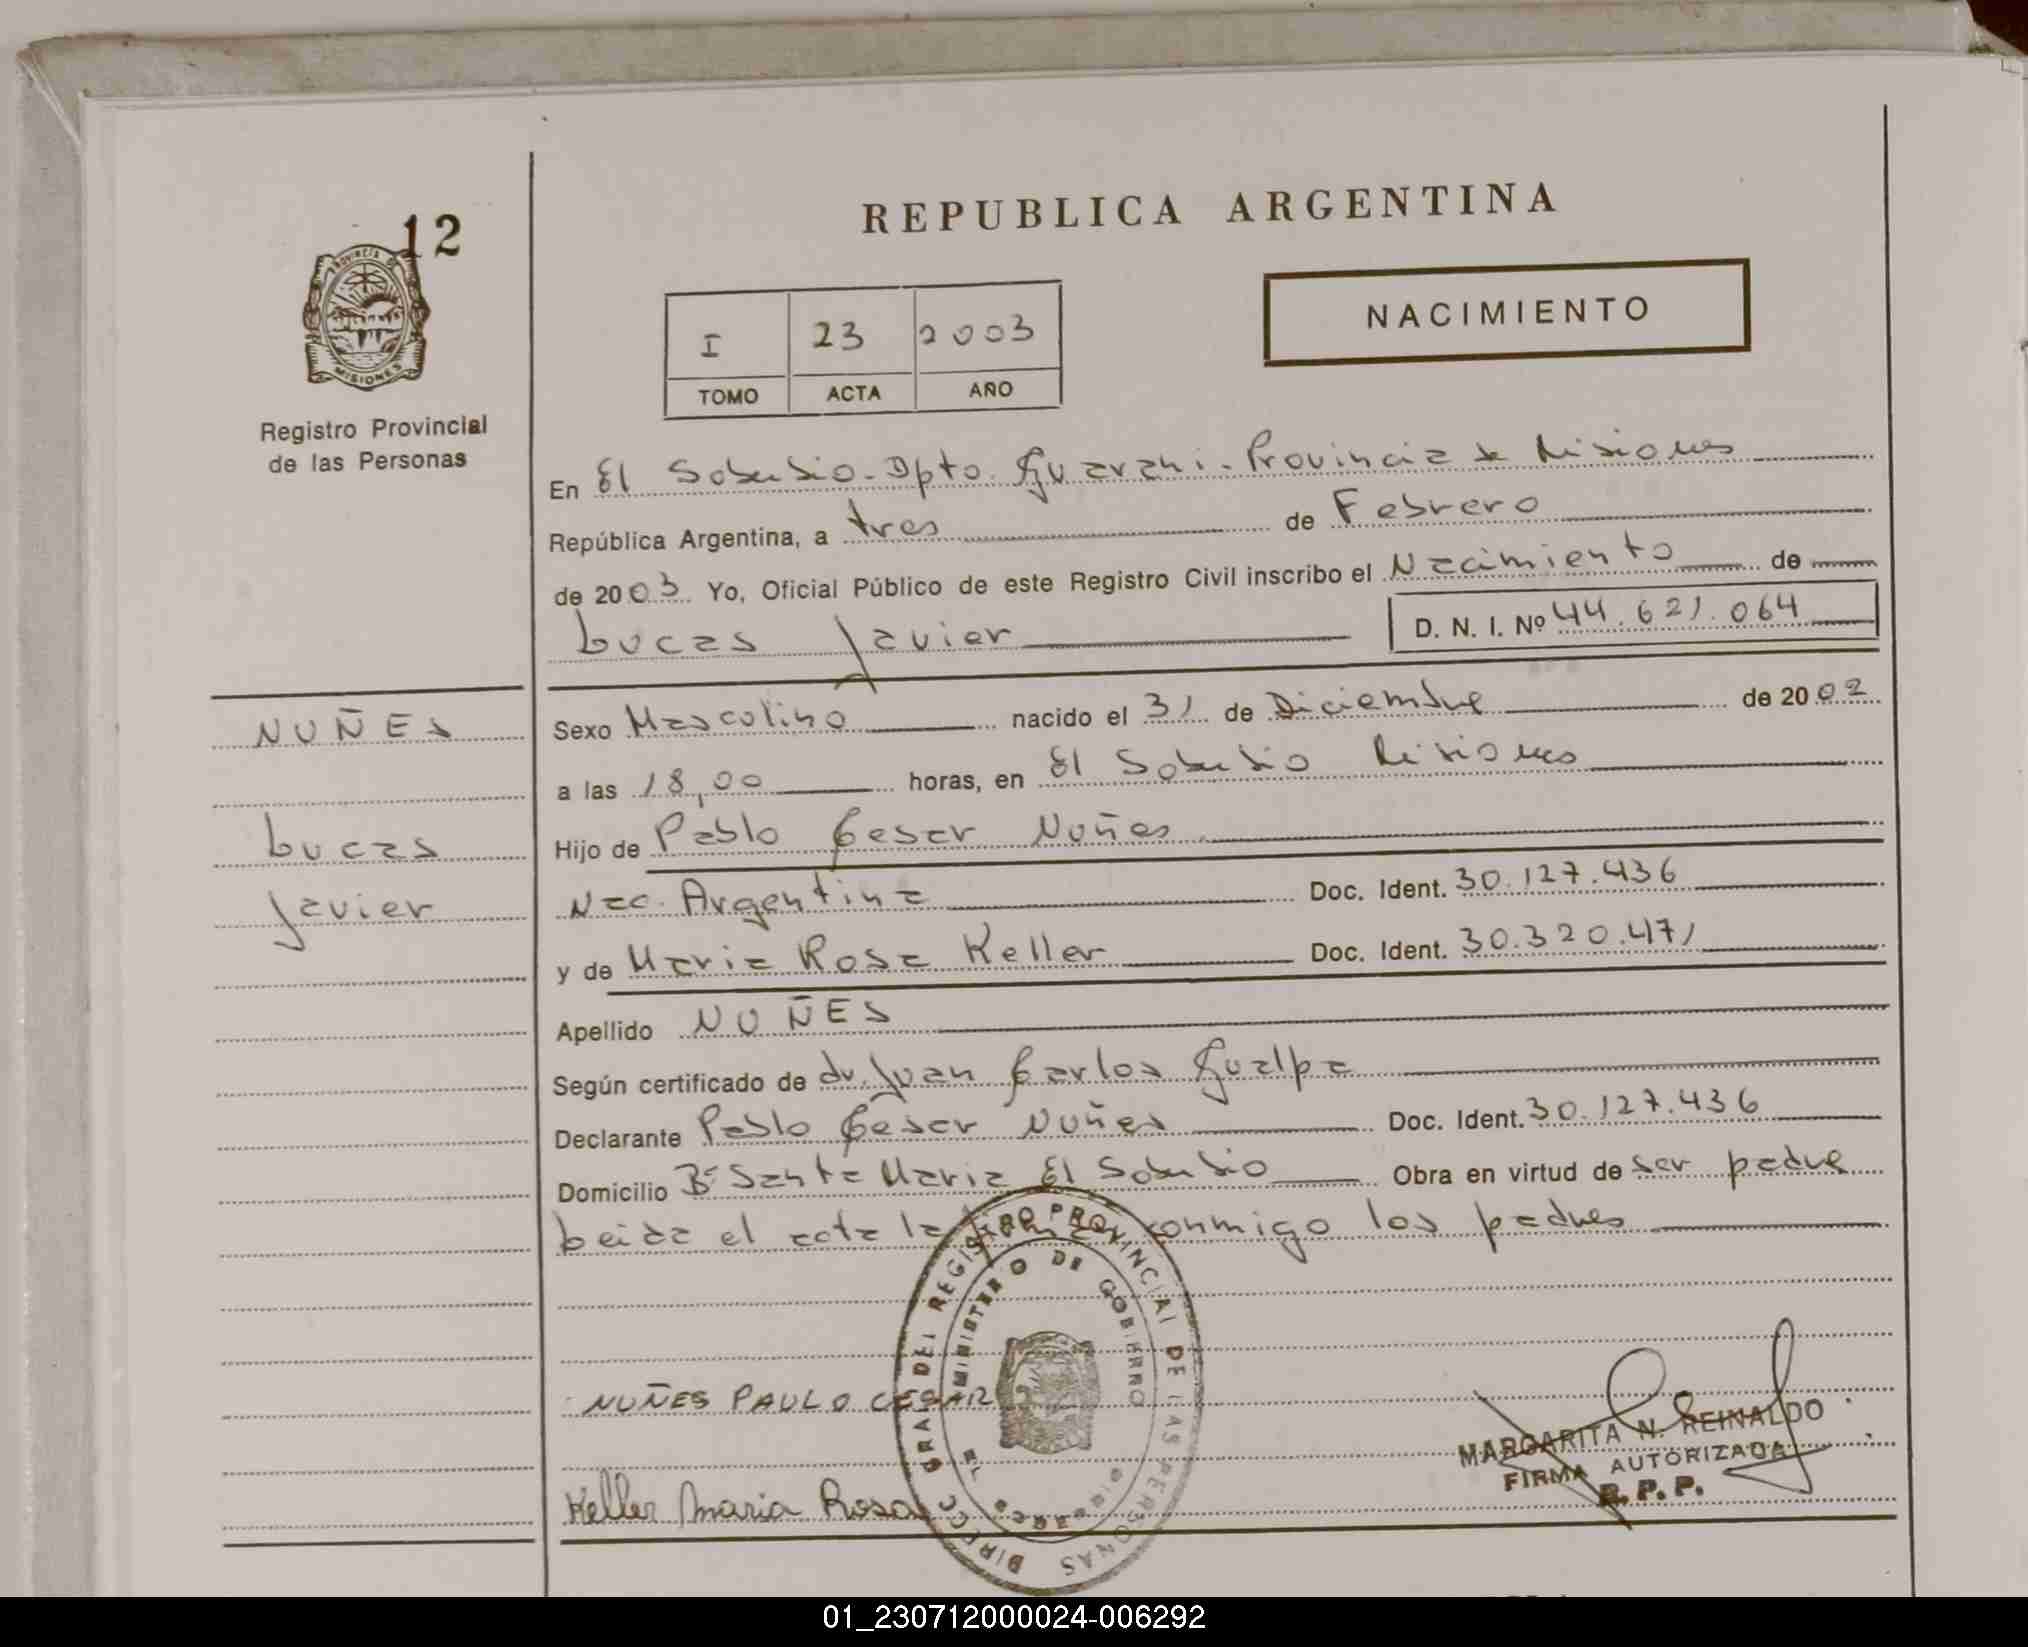 12
PROVINCIA DE
MISIONES
Registro Provincial
de las Personas
REPUBLICA ARGENTINA
I 23 2003
TOMO ACTA AÑO
NACIMIENTO
En El Soberbio - Dpto. Guarani - Provincia de Misiones
República Argentina, a tres de Febrero
de 2003 Yo, Oficial Público de este Registro Civil inscribo el Nacimiento de
Lucas Javier D. N. I. Nº 44.621.064
NUÑES
Lucas
Javier
Sexo Masculino nacido el 31 de Diciembre de 2002
a las 18,00 horas, en El Soberbio Misiones
Hijo de Pablo Cesar Nuñes
Nac. Argentina Doc. Ident. 30.127.436
y de Maria Rosa Keller Doc. Ident. 30.320.471
Apellido NUÑES
Según certificado de dr. Juan Carlos Gualpa
Declarante Pablo Cesar Nuñes Doc. Ident. 30.127.436
Domicilio Bº Santa Maria El Soberbio Obra en virtud de ser padre
Leida el acta la conmigo los padres
DIRECC. GRAL DEL REGISTRO PROVINCIAL DE LAS PERSONAS
MINISTERIO DE GOBIERNO
NUÑES PAULO CESAR
Keller Maria Rosa
MARGARITA N. REINALDO
FIRMA AUTORIZADA
R. P. P.
01_230712000024-006292